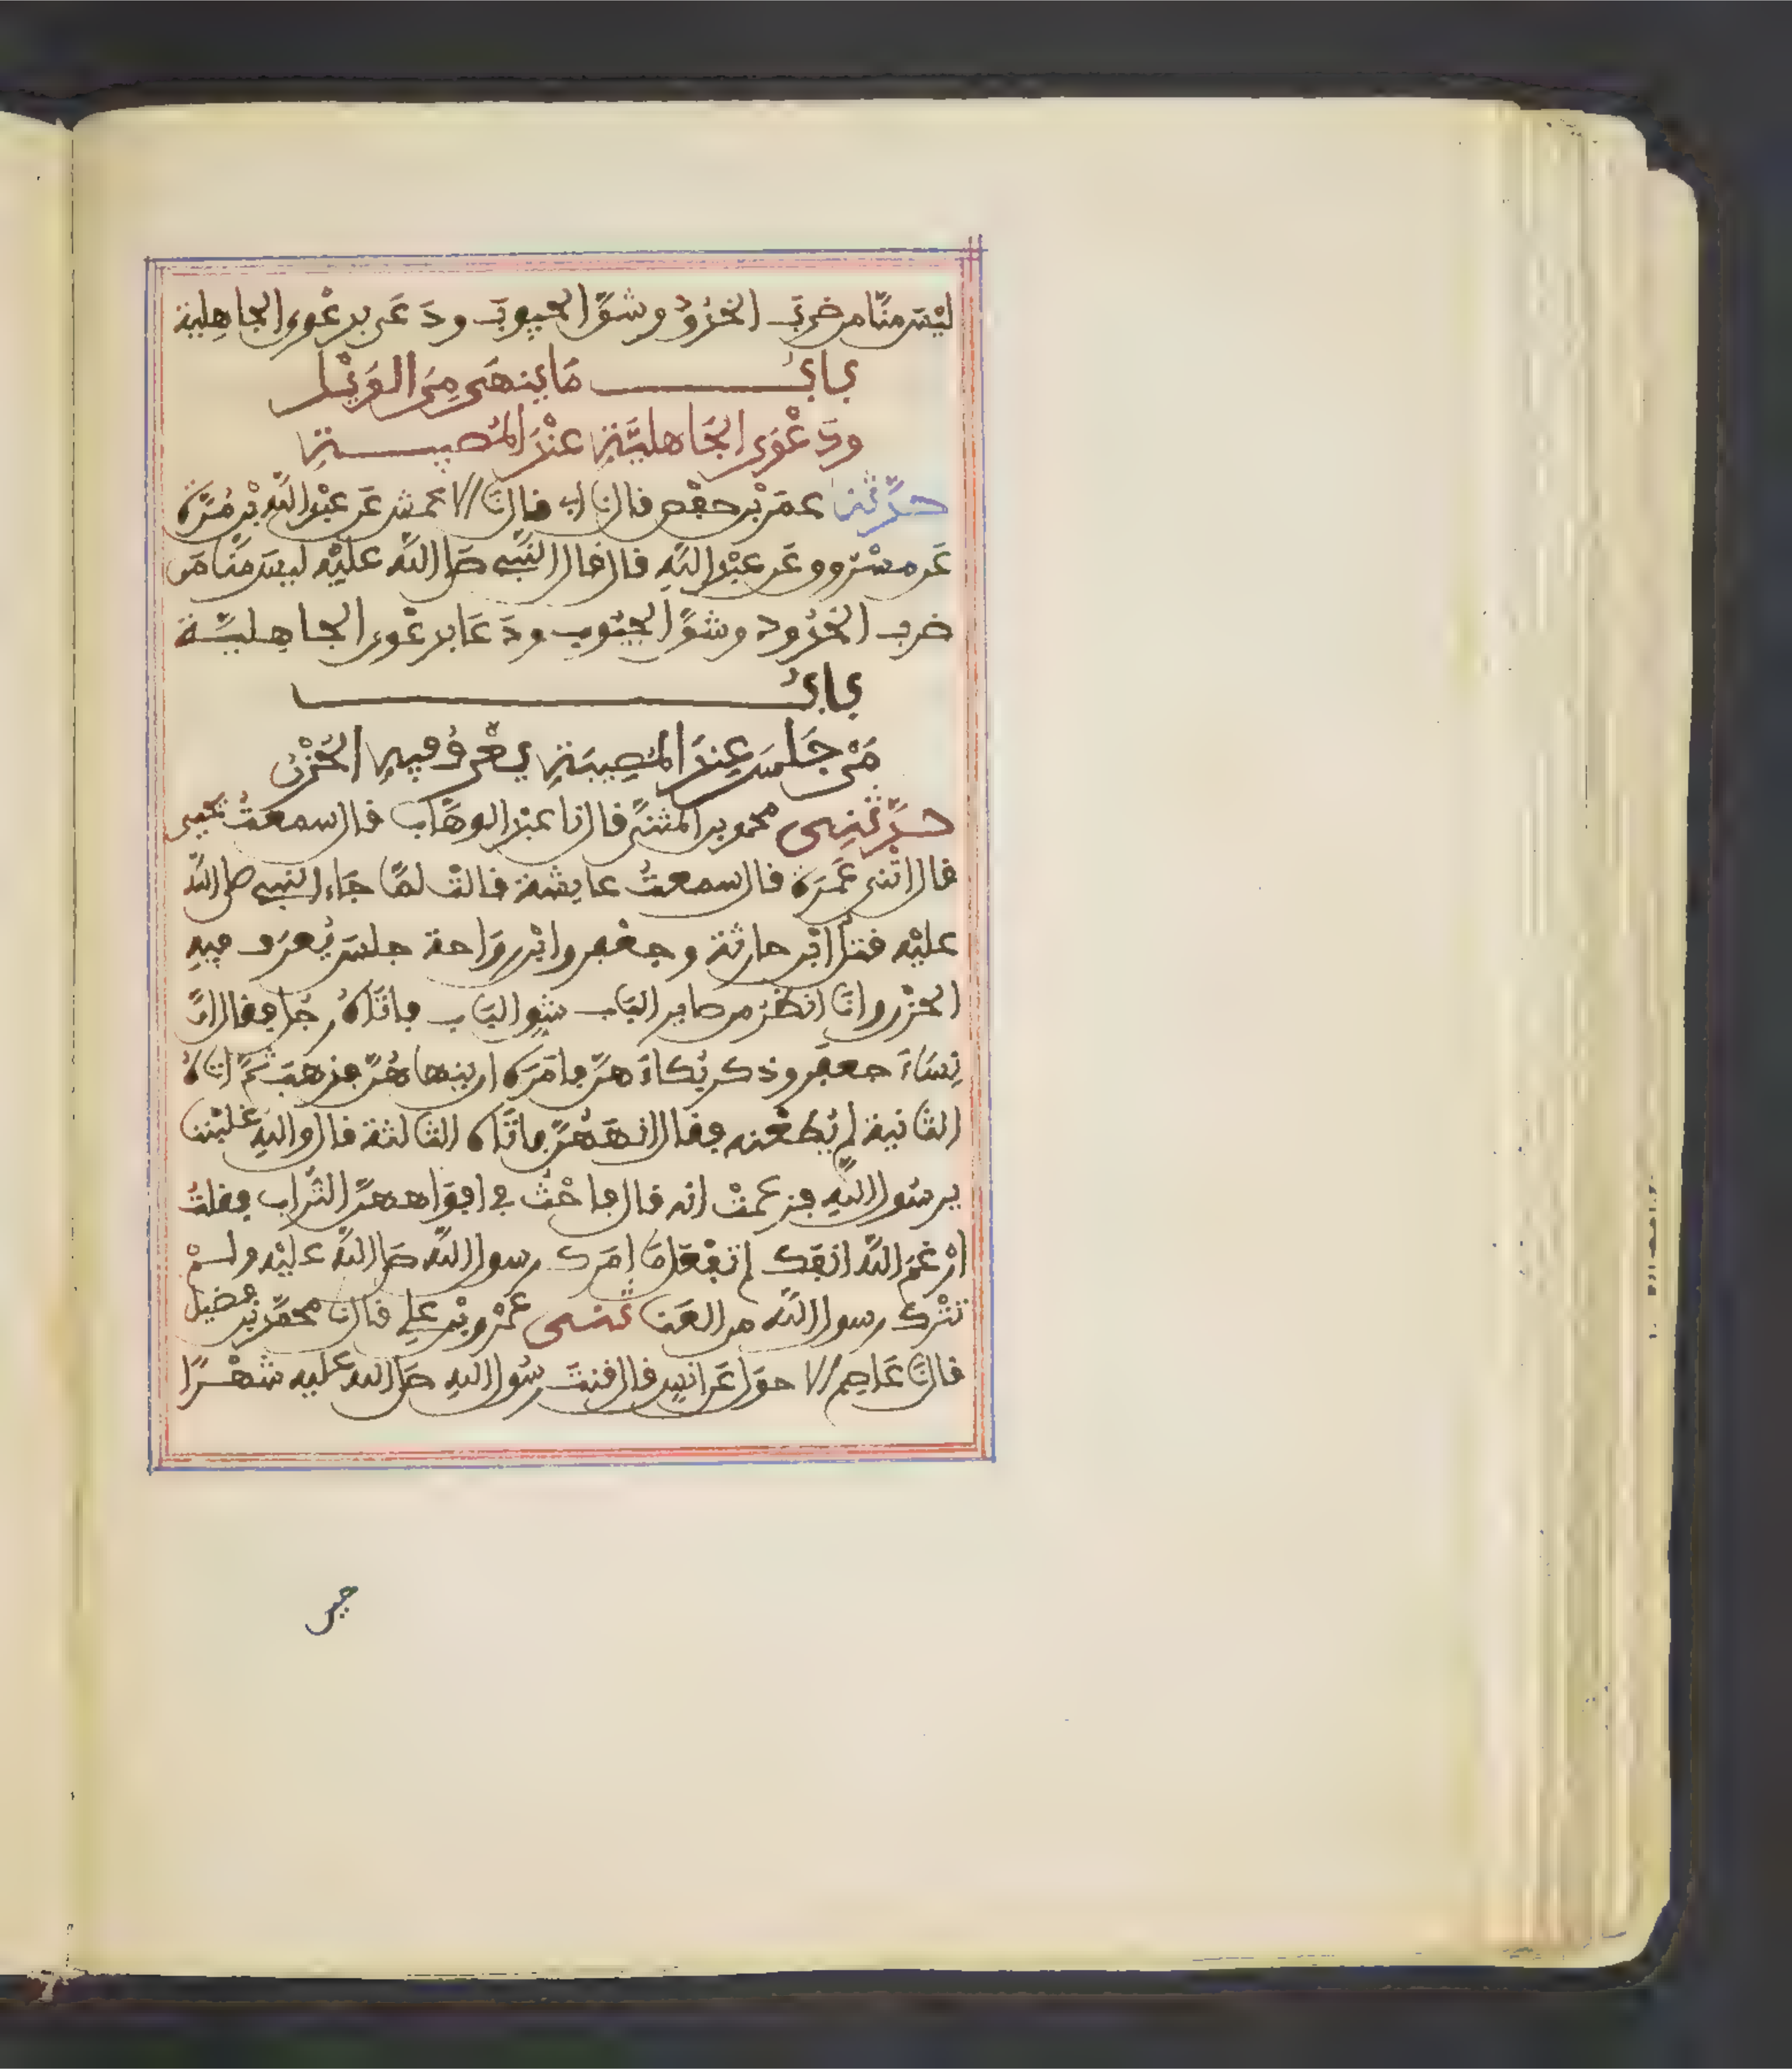 ليْسَ منَّا من ضربَ الخدُودَ وشقَّ الجيوبَ ودَعَى بدعْوى الجاهِلية
بابُ مَا ينهَى مِنَ الوَيْل
ودَعْوَى الجَاهليَّةِ عنْدَ المُصيبةِ
حدَّثنا عمَرُ بْن حفْص قال نا ابى قال نَا الاعمش عَن عبْد اللَّه بْن مُرَّةَ
عَن مسْروق عَن عبْد اللَّه قال قال النَّبي صَلى اللَّه عليْه ليسَ منَّا مَن
ضرب الخدُود وشقَّ الجيُوب ودَعَا بدعْوى الجاهِليَّة
بابُ
مَنْ جَلَسَ عِندَ المُصِيبَةِ يعْرفُ فيهِ الحُزْنُ
حدَّثنِى محمد بن المثنَّى قال نا عبْد الوهَّاب قال سمعتُ يحْيى
قال اخْبرتنى عَمْرَة قال سمعتُ عايشة قالتْ لمَّا جَاء النبي صلى اللَّه
عليْه قتلُ ابْن حارثة وجعْفر وابْن روَاحة جلسَ يُعرَف فيهِ
الحزْن وانَا انظُرُ من صاير البَاب شقِ البَاب فاتَاهُ رجُل فقال انَّ
نِسَاءَ جعفَر وذكر بُكاءَهنَّ فامَرَه ان ينهاهُنَّ فذهبَ ثمَّ اتَاهُ
الثانية لم يُطعْنه فقال انهَهُنَّ فاتَاه الثالثة قال واللهِ غلبْننا
يرسُول اللَّهِ فزعمتْ انه قال فاحْثُ في افوَاههنَّ التُّراب فقلتُ
ارْغمَ اللَّه انفَك لم تفْعَل مَا امَرك رسول اللَّه صَلى اللَّه عليْه ولمْ
تتْرك رسول اللَّه من العَنا ثنى عمْرُو بْن علي قال نا محمَّد بْن فضيل
قال نَا عَاصِم الاحوَل عَن انسٍ قال قنتَ رسُول اللهِ صَلى الله عَليه شهْرًا
حين